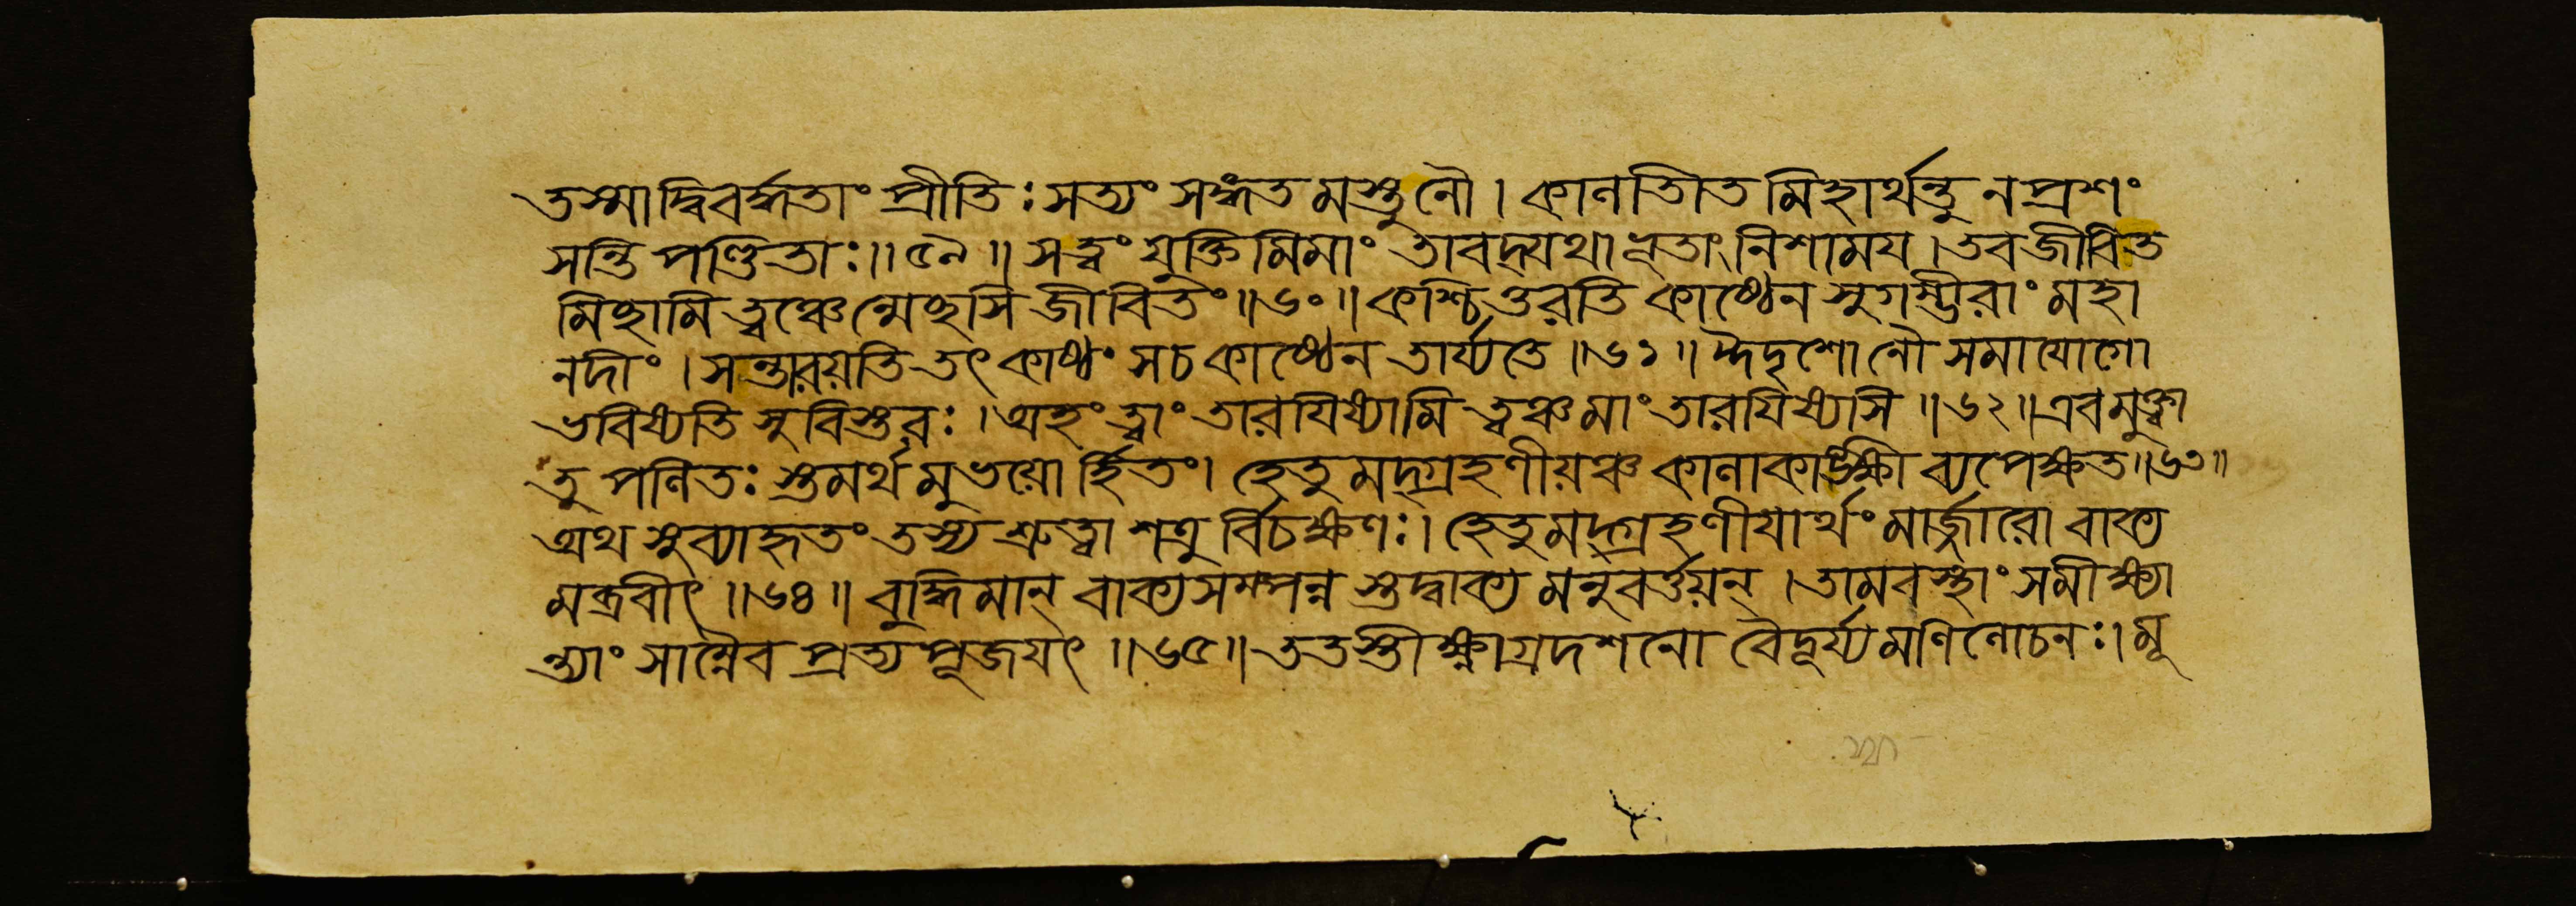 তস্মাদ্বিবর্দ্ধতাং প্রীতিঃ সত্যং সঙ্গতমস্তু নৌ । কালাতীতমিহার্থন্তু ন প্রশং
সন্তি পণ্ডিতাঃ ॥ ৫৯ ॥ স ত্বং যুক্তিমিমাং তাবদ্যথাভূতাং নিশাময । তব জীবিত
মিচ্ছামি ত্বঞ্চেন্মেচ্ছসি জীবিতং ॥ ৬০ ॥ কশ্চিত্তরতি কাষ্ঠেন সুগম্ভীরাং মহা
নদীং । সন্তারয়তি তৎ কাষ্ঠং স চ কাষ্ঠেন তার্য্যতে ॥ ৬১ ॥ ঈদৃশো নৌ সমাযোগো
ভবিষ্যতি সুবিস্তরঃ । অহং ত্বাং তারযিষ্যামি ত্বঞ্চ মাং তারযিষ্যসি ॥ ৬২ ॥ এবমুক্ত্বা
তু পলিতঃ স্তমর্থমুভয়োর্হিতং । হেতুমদ্গ্রহণীয়ঞ্চ কালাকাঙ্ক্ষী ব্যপেক্ষত ॥ ৬৩ ॥
অথ সুব্যাহৃতং তস্য শ্রুত্বা শত্রুর্বিচক্ষণঃ । হেতুমদ্গ্রহণীযার্থং মার্জ্জারো বাক্য
মব্রবীৎ ॥ ৬৪ ॥ বুদ্ধিমান্ বাক্যসম্পন্নস্তদ্বাক্যমনুবর্ত্তয়ন্ । তামবস্থাং সমীক্ষ্যা
ন্ত্যাং সাম্নৈব প্রত্যপূজযৎ ॥ ৬৫ ॥ ততস্তীক্ষ্ণাগ্রদশনো বৈদূর্য্যমণিলোচনঃ । মূ